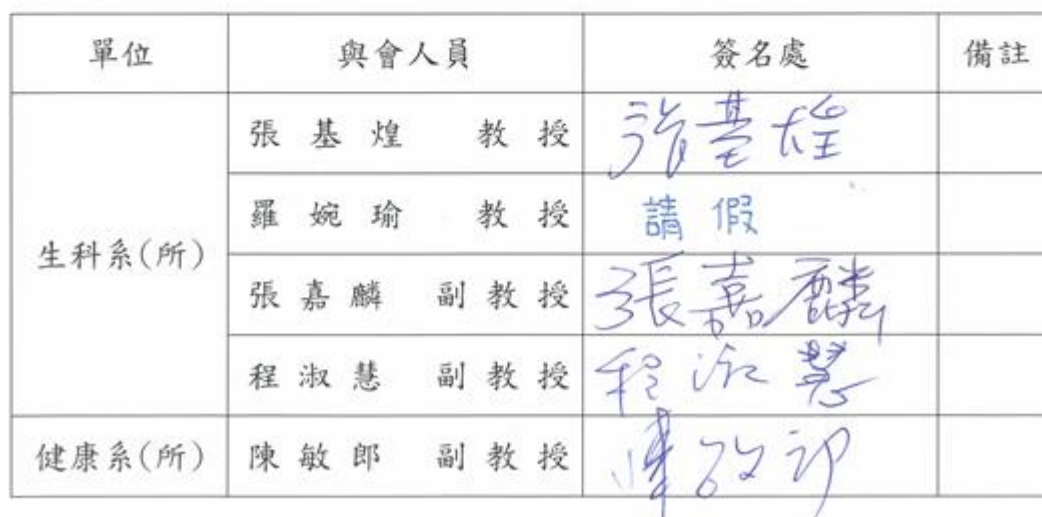 單位 與會人員 簽名處 備註
張基煌 教授 張基煌
羅婉瑜 教授 請假
生科系(所)
張嘉麟 副教授 張嘉麟
程淑慧 副教授 程淑慧
健康系(所) 陳敏郎 副教授 陳敏郎